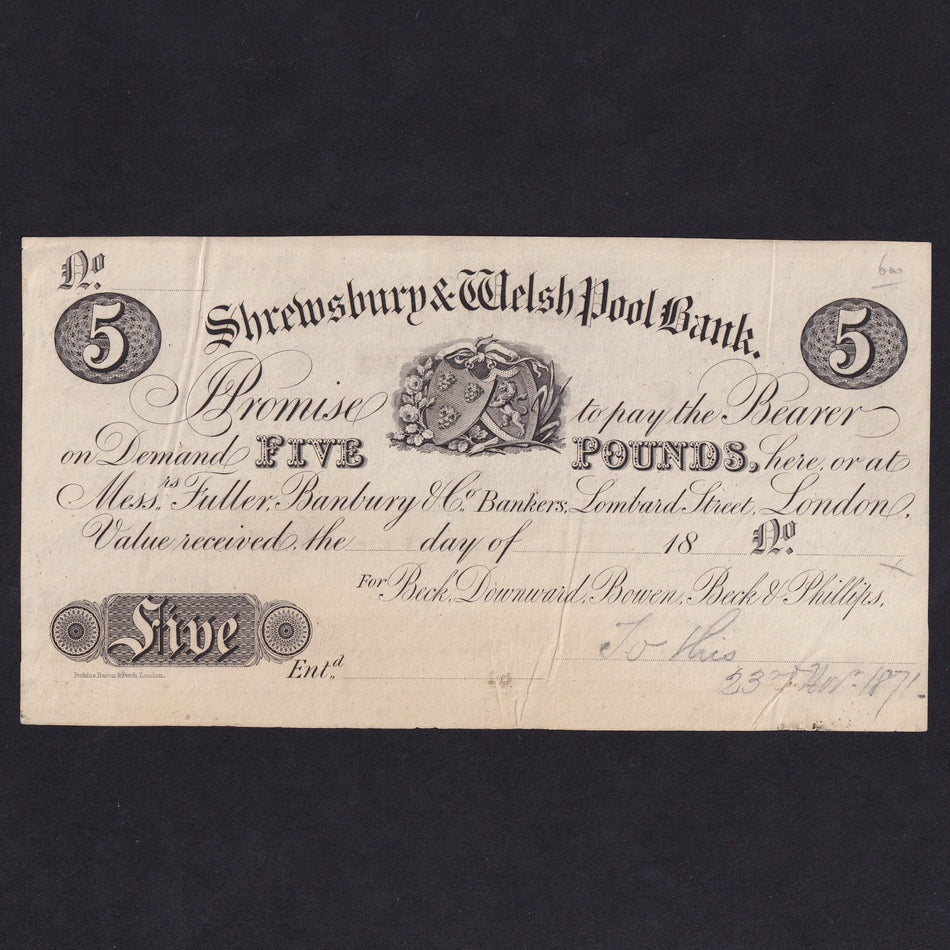 No.
600
5 Shrewsbury & Welsh Pool Bank. 5
I Promise to pay the Bearer
on Demand FIVE POUNDS, here, or at
Mess,,rs Fuller, Banbury & Co. Bankers, Lombard Street, London,
Value received, the day of 18 No.
For Beck, Downward, Bowen, Beck & Phillips,
Five
To this
Ent,,d
23rd Novr. 1871.
Perkins, Bacon & Petch, London.